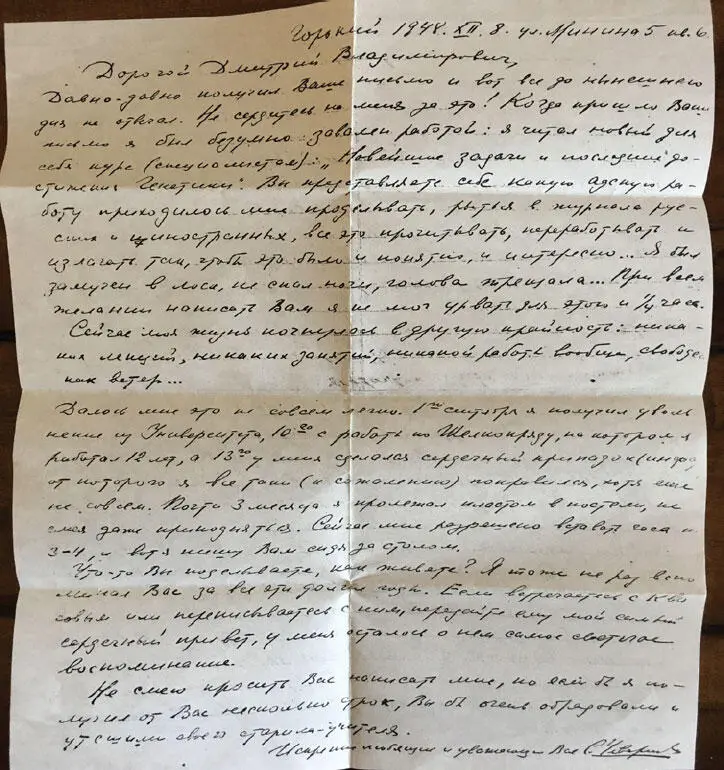 Горький 1948. XII. 8. ул. Минина 5 кв. 6.
Дорогой Дмитрий Владимирович,
Давно-давно получил Ваше письмо и вот все до нынешнего
дня не отвечал. Не сердитесь на меня за это! Когда пришло Ваше
письмо я был безумно завален работой: я читал новый для
себя курс (специалистам): "Новейшие задачи и последние до-
стижения Генетики". Вы представляете себе какую адскую ра-
боту приходилось мне проделывать, рыться в журналах рус-
ских и иностранных, все это прочитывать, перерабатывать и
излагать так, чтобы это было и понятно, и интересно... Я был
замучен в лоск, не спал ночи, голова трещала... При всем
желании написать Вам я не мог урвать для этого и 1/4 часа.
Сейчас моя жизнь качнулась в другую крайность: ника-
ких лекций, никаких занятий, никакой работы вообще, свободен
как ветер...
Далось мне это не совсем легко. 1го сентября я получил уволь
нение из Университета, 10го с работы по Шелкопряду, на котором я
работал 12 лет, а 13го у меня сделался сердечный припадок
от которого я все таки (к сожалению) поправился, хотя еще
не совсем. Почти 3 месяца я пролежал пластом в постели, не
смея даже приподняться. Сейчас мне разрешено вставать часа на
3-4, и вот я пишу Вам сидя за столом.
Что-то Вы поделываете, как живете? Я тоже не раз вспо
минал Вас за все эти долгие годы. Если встречаетесь с
или переписываетесь с ним, передайте ему мой самый
сердечный привет, у меня осталось о нем самое светлое
воспоминание.
Не смею просить Вас написать мне, но если бы я по-
лучил от Вас несколько строк, Вы бы очень обрадовали и
утешили своего старика-учителя.
Искренно любящий и уважающий Вас С.